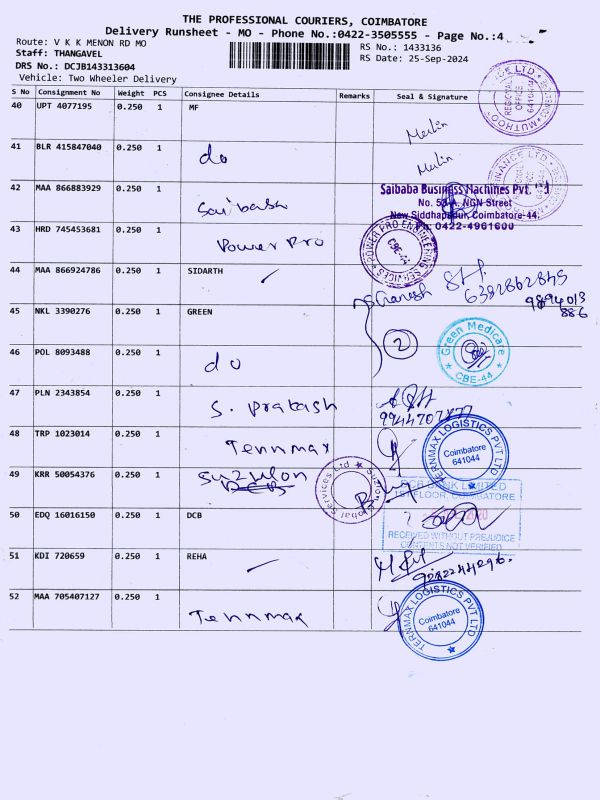 THE PROFESSIONAL COURIERS, COIMBATORE
Delivery Runsheet - MO - Phone No.:0422-3505555 - Page No.:4
Route: V K K MENON RD MO
RS No.: 1433136
Staff: THANGAVEL
RS Date: 25-Sep-2024
DRS No.: DCJB143313604
Vehicle: Two Wheeler Delivery
S No Consignment No Weight PCS Consignee Details Remarks Seal & Signature
40 UPT 4077195 0.250 1 MF
REGIONAL OFFICE 641044
Merlin
41 BLR 415847040 0.250 1 do
Merlin
42 MAA 866883929 0.250 1 Saibabsh
Saibaba Business Machines Pvt. Ltd
No. 53-A, NGN Street
New Siddhapudur, Coimbatore-44.
Ph: 0422-4961600
43 HRD 745453681 0.250 1 Power Pro
POWER PRO ENGINEERING SERVICES
CBE-44
44 MAA 866924786 0.250 1 SIDARTH ✓
6382862845
45 NKL 3390276 0.250 1 GREEN
Ganesh
9894013
886
2
Green Medicare
CBE-44
46 POL 8093488 0.250 1 do
47 PLN 2343854 0.250 1 S. Prakash
9944707877
48 TRP 1023014 0.250 1 Tennmax
TERNMAX LOGISTICS PVT LTD
Coimbatore
641044
49 KRR 50054376 0.250 1 Suzulon
DCB
Suzlon Global Services Ltd
50 EDQ 16016150 0.250 1 DCB
DCB BANK LIMITED
1ST FLOOR, COIMBATORE
RECEIVED WITHOUT PREJUDICE
CONTENTS NOT VERIFIED
51 KDI 720659 0.250 1 REHA
9282244296.
52 MAA 705407127 0.250 1 Tennmax
TERNMAX LOGISTICS PVT LTD
Coimbatore
641044